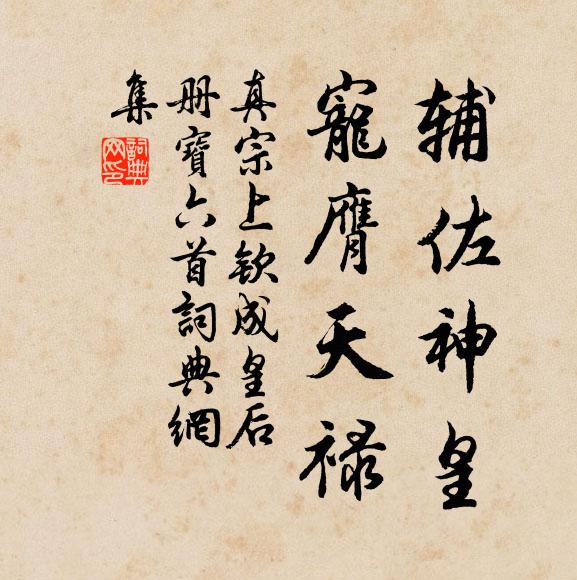 辅佐神皇
寵膺天禄
真宗上欽成皇后
册寶六首詞典網
集
詞典網印